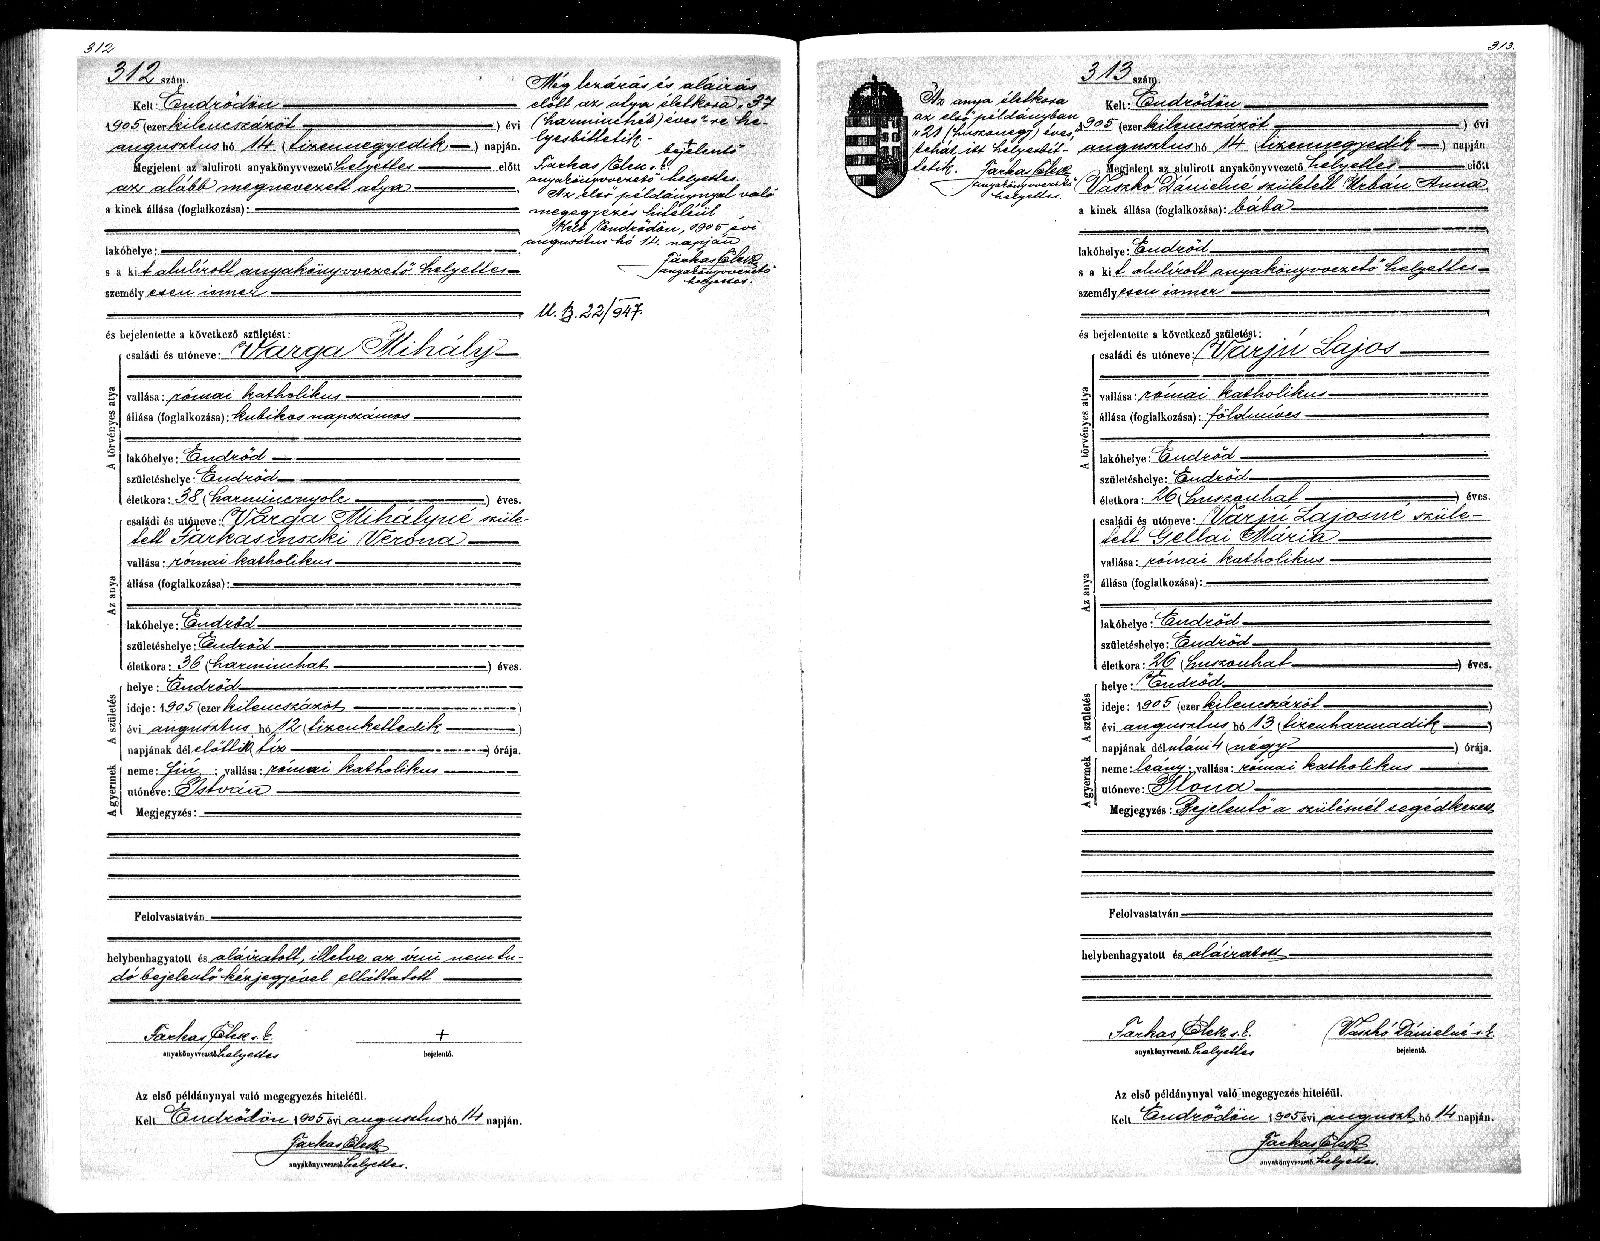 312
312 szám.
Kelt: Endrődön
1905 (ezer kilencszázöt ) évi
augusztus hó 14 (tizennegyedik ) napján.
Megjelent az alulirott anyakönyvvezető helyettes előtt
az alább megnevezett atya
a kinek állása (foglalkozása):
lakóhelye:
s a kit alulírott anyakönyvvezető helyettes
személyesen ismer
és bejelentette a következő születést:
A törvényes atya
családi és utóneve: Varga Mihály
vallása: római katholikus
állása (foglalkozása): kubikos napszámos
lakóhelye: Endrőd
születéshelye: Endrőd
életkora: 38 (harmincnyolc ) éves.
Az anya
családi és utóneve: Varga Mihályné szüle-
tett Farkasinszki Verona
vallása: római katholikus
állása (foglalkozása):
lakóhelye: Endrőd
születéshelye: Endrőd
életkora: 36 (harminchat ) éves.
A születés
helye: Endrőd
ideje: 1905 (ezer kilencszázöt )
évi augusztus hó 12 (tizenkettedik )
napjának délelőtti tíz ) órája.
A gyermek
neme: fiú ; vallása: római katholikus
utóneve: István
Megjegyzés:
Felolvastatván
helybenhagyatott és aláíratott, illetve az írni nem tu-
dó bejelentő kézjegyével elláttatott
Farkas Elek s. k. +
anyakönyvvezető helyettes bejelentő.
Az első példánynyal való megegyezés hiteléül.
Kelt Endrődön 1905 évi augusztus hó 14 napján.
Farkas Elek
anyakönyvvezető helyettes.
Még lezárás és aláírás
előtt az atya életkora „37
(harminchét) éves"-re he-
lyesbíttetik.
bejelentő
Farkas Elek s. k.
anyakönyvvezető helyettes.
Az első példánynyal való
megegyezés hiteléül
Kelt Endrődön, 1905 évi
augusztus hó 14. napján
Farkas Elek
anyakönyvvezető
helyettes.
U. B. 22/947.
313.
Az anya életkora
az első példányban
„21 (huszonegy) éves"
tehát itt helyesbít-
tetik. Farkas Elek
anyakönyvvezető
helyettes.
313 szám.
Kelt: Endrődön
1905 (ezer kilencszázöt ) évi
augusztus hó 14 (tizennegyedik ) napján
Megjelent az alulirott anyakönyvvezető helyettes előtt
Vaszkó Dánielné született Urbán Anna
a kinek állása (foglalkozása): bába
lakóhelye: Endrőd
s a kit alulírott anyakönyvvezető helyettes
személyesen ismer
és bejelentette a következő születést:
A törvényes atya
családi és utóneve: Varjú Lajos
vallása: római katholikus
állása (foglalkozása): földmíves
lakóhelye: Endrőd
születéshelye: Endrőd
életkora: 26 (huszonhat ) éves.
Az anya
családi és utóneve: Varjú Lajosné szüle-
tett Gellai Mária
vallása: római katholikus
állása (foglalkozása):
lakóhelye: Endrőd
születéshelye: Endrőd
életkora: 26 (huszonhat ) éves.
A születés
helye: Endrőd
ideje: 1905 (ezer kilencszázöt )
évi augusztus hó 13 (tizenharmadik )
napjának délután 4 (négy ) órája.
A gyermek
neme: leány; vallása: római katholikus
utóneve: Ilona
Megjegyzés: Bejelentő a szülésnél segédkezett
Felolvastatván
helybenhagyatott és aláíratott
Farkas Elek s. k. Vaszkó Dánielné s. k.
anyakönyvvezető helyettes bejelentő.
Az első példánynyal való megegyezés hiteléül.
Kelt Endrődön 1905 évi auguszt hó 14 napján.
Farkas Elek
anyakönyvvezető helyettes.